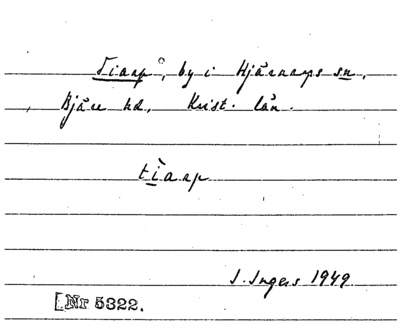 Tiarp, by i Hjärnarps sn,
Bjäre hd, Krist. län.
tìarp
I. Ingers 1949
[Nr 5322.